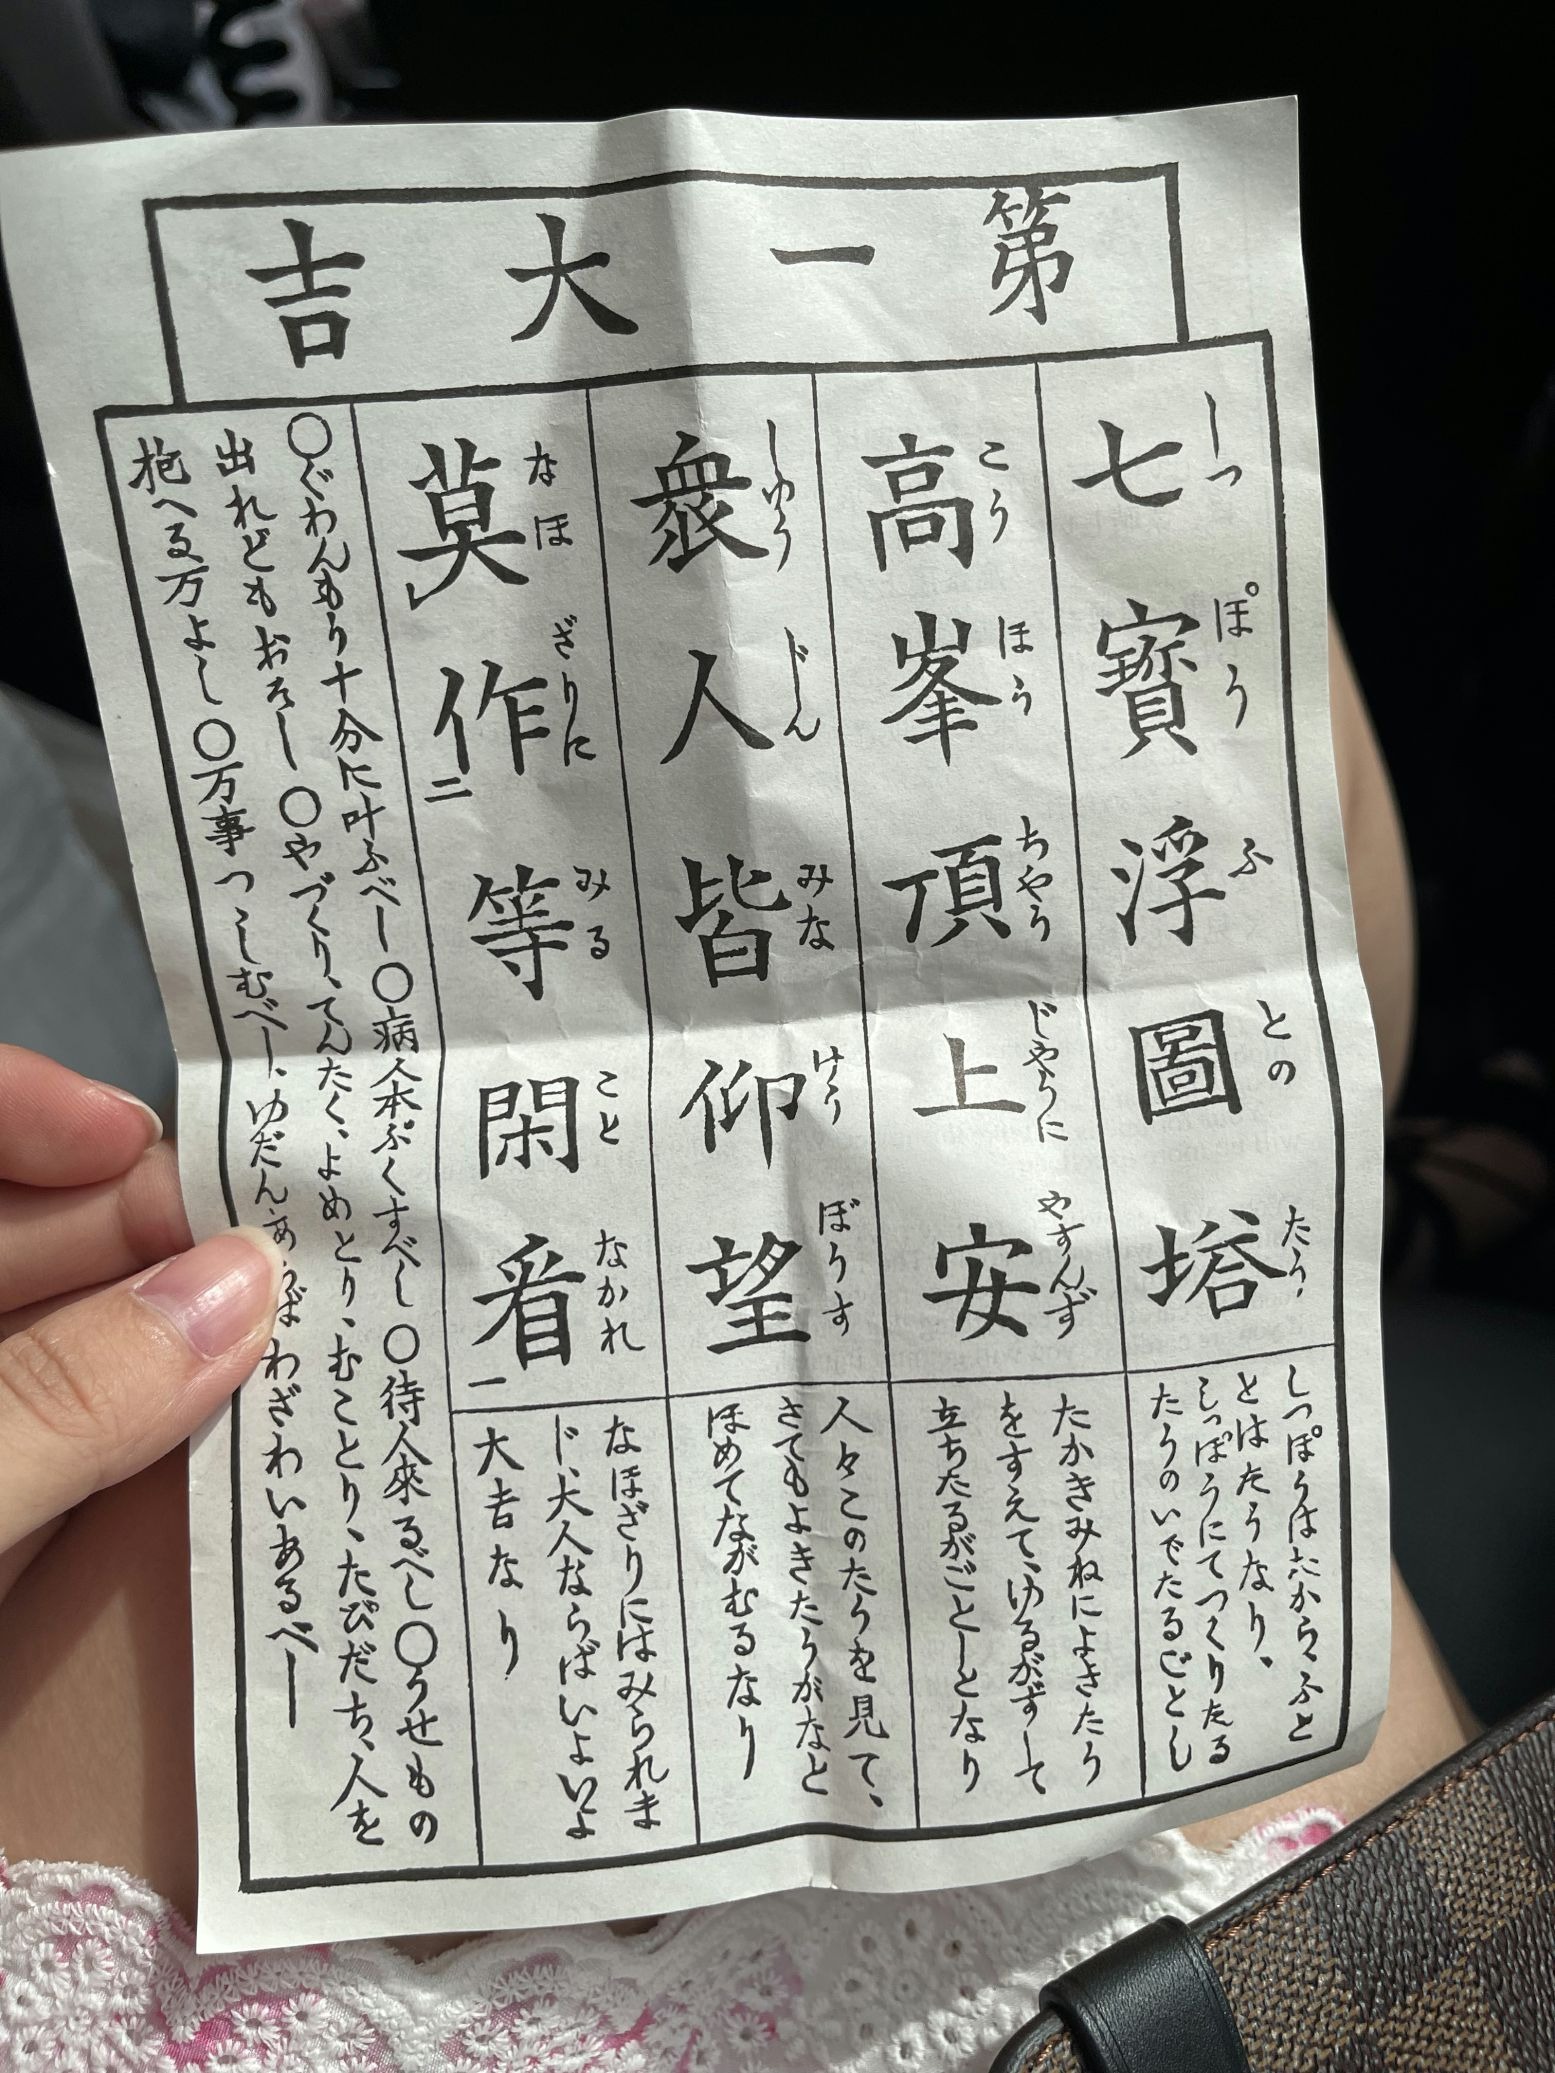 第一大吉
七寶浮圖塔
しつぽうふとのたう
しっぽうはたから、ふと
とはたうなり、
しっぽうにてつくりたる
たうのいでたるごとし
高峯頂上安
こうほうちやうじやうにやすんず
たかきみねによきたう
をすえて、ゆるがずして
立ちたるがごとしとなり
衆人皆仰望
しゆうじんみなけうぼうす
人々このたうを見て、
さてもよきたうがなと
ほめてながむるなり
莫作二等閑看一
なほざりにみることなかれ
なほざりにはみられま
じ、大人ならばいよいよ
大吉なり
〇ぐわんもう十分に叶ふべし〇病人本ぷくすべし〇待人來るべし〇うせもの
出れどもおそし〇やづくり、てんたく、よめとり、むことり、たびだち、人を
抱へる万よし〇万事つゝしむべし、ゆだんあらばわざわいあるべし